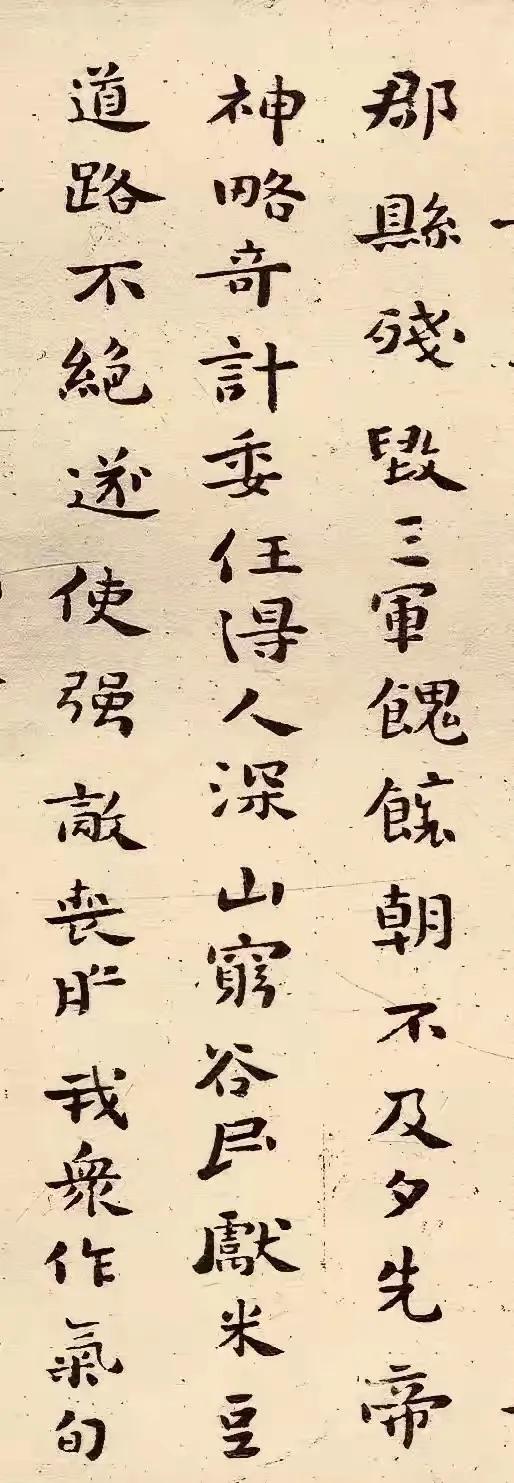 郡縣殘毀三軍餽饟朝不及夕先帝
神略奇計委任得人深山窮谷民獻米豆
道路不絕遂使强敵喪膽我衆作氣旬